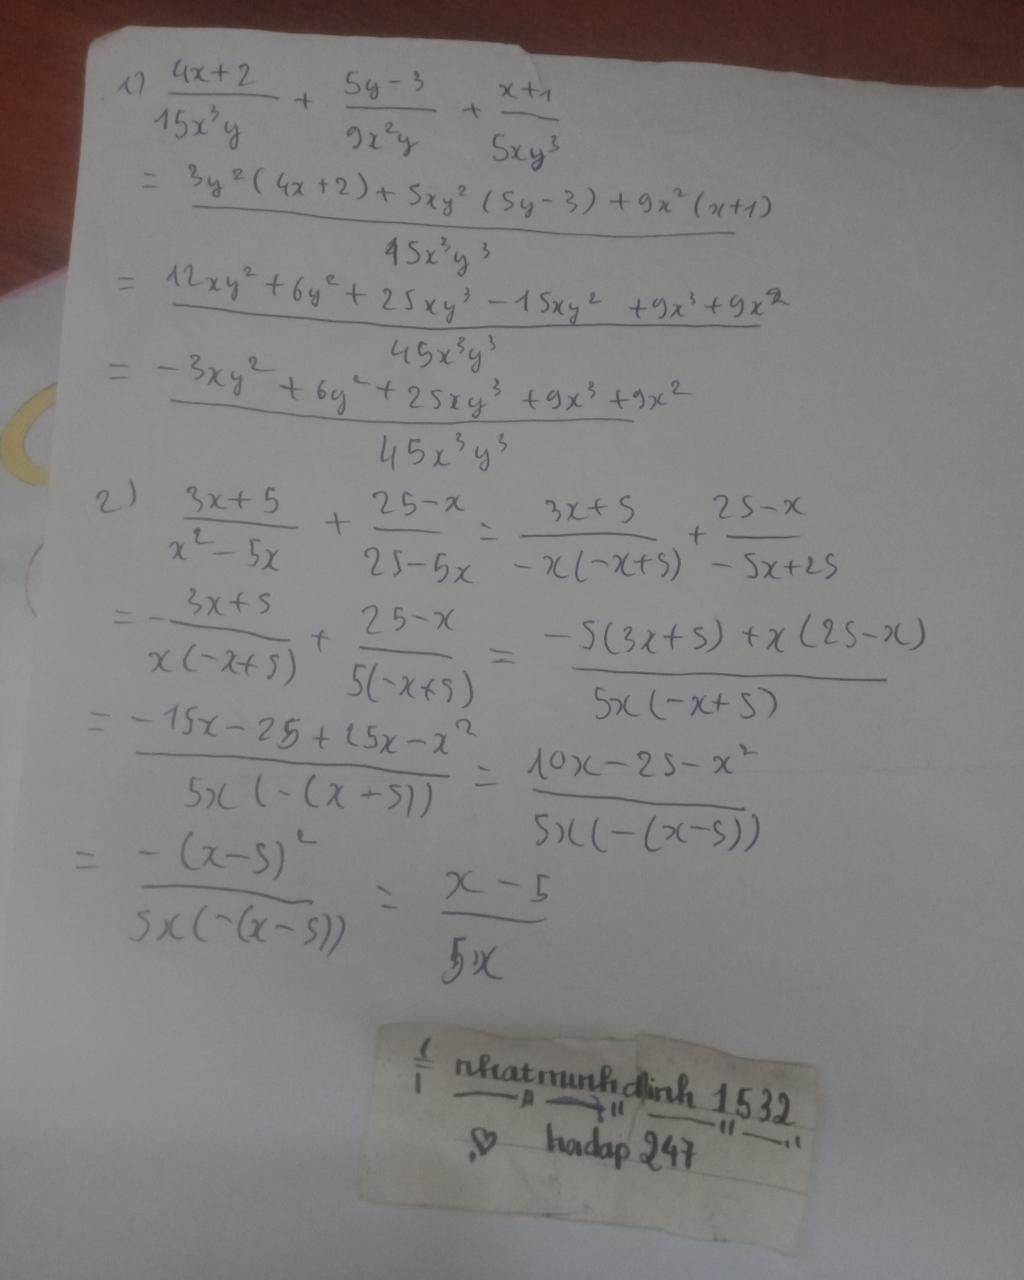 1) (4x+2)/(15x³y) + (5y-3)/(9x²y) + (x+1)/(5xy³)
= (3y²(4x+2) + 5xy²(5y-3) + 9x²(x+1))/(45x³y³)
= (12xy² + 6y² + 25xy³ - 15xy² + 9x³ + 9x²)/(45x³y³)
= (-3xy² + 6y² + 25xy³ + 9x³ + 9x²)/(45x³y³)
2) (3x+5)/(x²-5x) + (25-x)/(25-5x) = (3x+5)/(-x(-x+5)) + (25-x)/(-5x+25)
= -(3x+5)/(x(-x+5)) + (25-x)/(5(-x+5)) = (-5(3x+5) + x(25-x))/(5x(-x+5))
= (-15x-25+25x-x²)/(5x(-(x+5))) = (10x-25-x²)/(5x(-(x-5)))
= (-(x-5)²)/(5x(-(x-5))) = (x-5)/(5x)
nhatminhdinh 1532
hoidap 247